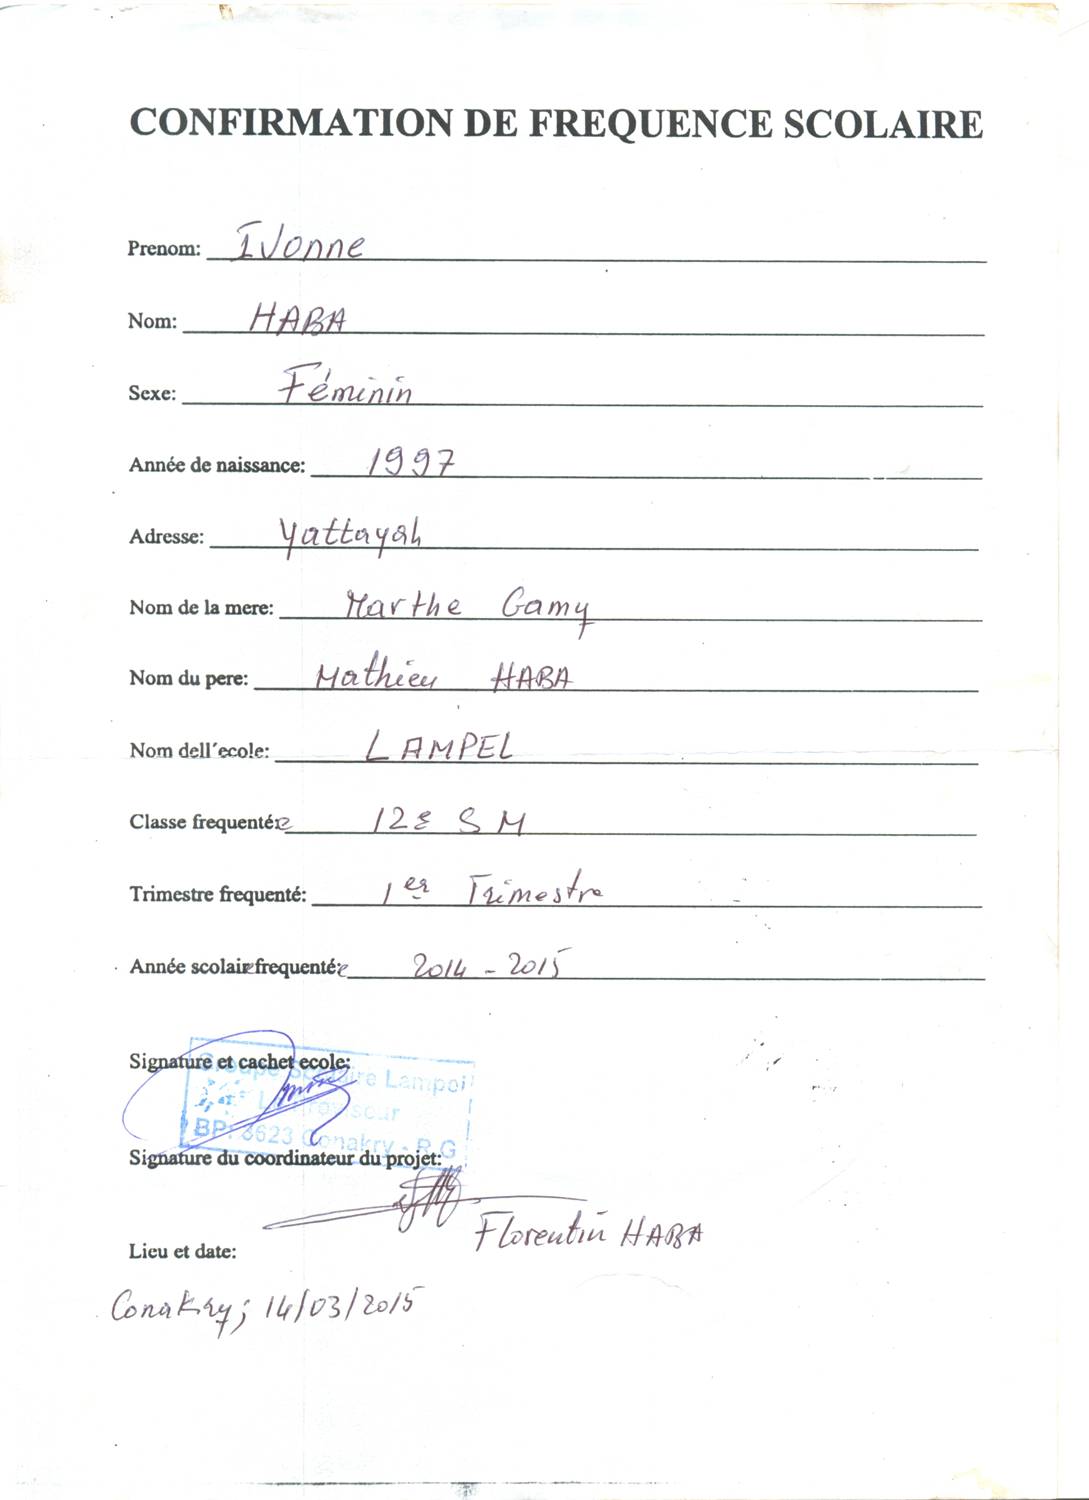 CONFIRMATION DE FREQUENCE SCOLAIRE
Prenom: Ivonne
Nom: HABA
Sexe: Féminin
Année de naissance: 1997
Adresse: Yattayah
Nom de la mere: Marthe Gamy
Nom du pere: Mathieu HABA
Nom dell'ecole: LAMPEL
Classe frequentée 12e SM
Trimestre frequenté: 1er Trimestre
Année scolaire frequentée 2014 - 2015
Signature et cachet ecole:
Groupe Scolaire Lampel
BP: 3623 Conakry - R.G
Signature du coordinateur du projet:
Florentin HABA
Lieu et date:
Conakry; 14/03/2015